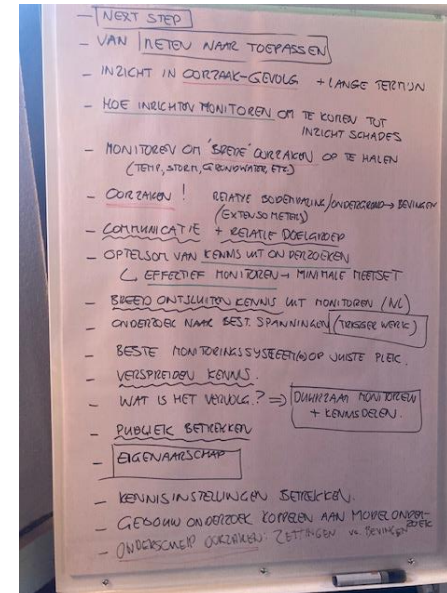 - NEXT STEP
- VAN METEN NAAR TOEPASSEN
- INZICHT IN OORZAAK-GEVOLG + LANGE TERMIJN
- HOE INRICHTEN MONITOREN OM TE KOMEN TOT
INZICHT SCHADES
- MONITOREN OM 'BREDE' OORZAKEN OP TE HALEN
(TEMP, STORM, GRONDWATER, ETC.)
- OORZAKEN! RELATIE BODEMDALING/ONDERGROND → BEVINGEN
(EXTENSOMETERS)
- COMMUNICATIE + RELATIE DOELGROEP
- OPTELSOM VAN KENNIS UIT ONDERZOEKEN
↳ EFFECTIEF MONITOREN → MINIMALE MEETSET
- BREED ONTSLUITEN KENNIS UIT MONITOREN (NL)
- ONDERZOEK NAAR BEST. SPANNINGEN (TRIGGER WERK)
- BESTE MONITORINGSSYSTEEM(EN) OP JUISTE PLEK.
- VERSPREIDEN KENNIS.
- WAT IS HET VERVOLG.? ⇒ DUURZAAM MONITOREN
+ KENNISDELEN.
- PUBLIEK BETREKKEN
- EIGENAARSCHAP
- KENNISINSTELLINGEN BETREKKEN.
- GEBOUW ONDERZOEK KOPPELEN AAN MODELONDER-
ZOEK
- ONDERSCHEID OORZAKEN: ZETTINGEN vs. BEVINGEN